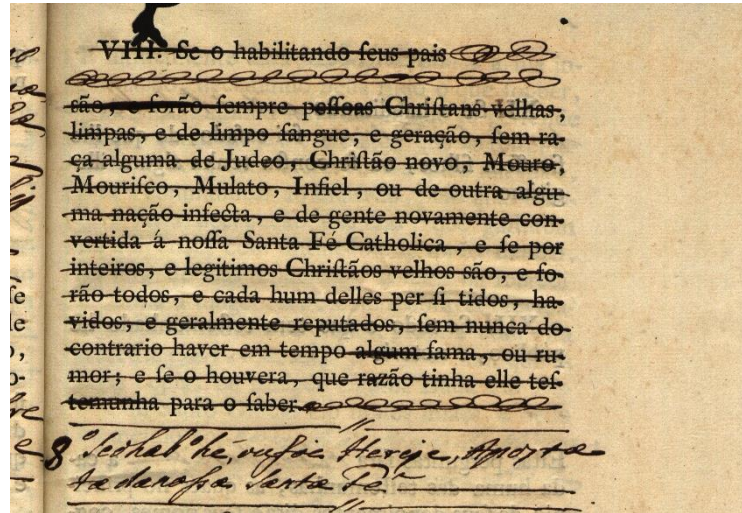 VIII. Se o habilitando ſeus pais
ſão, e forão ſempre peſſoas Chriſtans velhas,
limpas, e de limpo ſangue, e geração, ſem ra-
ça alguma de Judeo, Chriſtão novo, Mouro,
Mouriſco, Mulato, Infiel, ou de outra algu
ma nação infecta, e de gente novamente con-
vertida á noſſa Santa Fé Catholica, e ſe por
inteiros, e legitimos Chriſtãos velhos são, e fo-
rão todos, e cada hum delles per ſi tidos, ha-
vidos, e geralmente reputados, ſem nunca do
contrario haver em tempo algum fama, ou ru-
mor; e ſe o houvera, que razão tinha elle teſ-
temunha para o ſaber.
8º Se o habº hé, ou foi Herege, Aposta
ta da noſsa Santa Fé